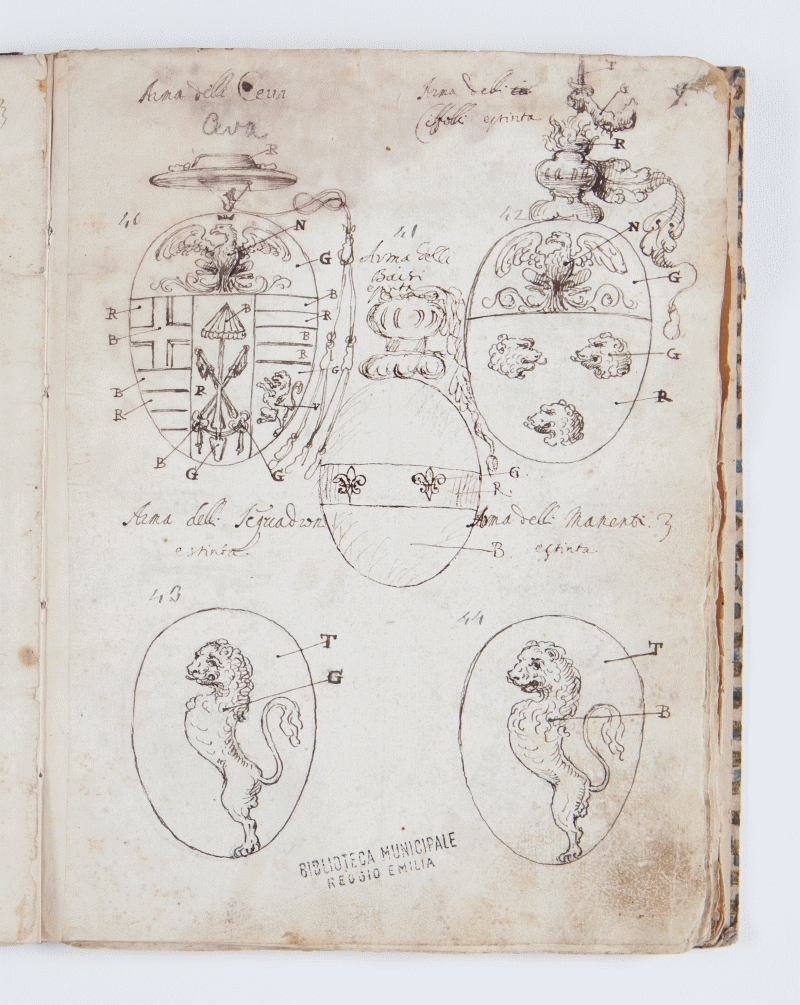 Arma delli Ceva
Ceva
R
40
N
G
R
B
B
R
B
B
R
B
R
G
R
V
B
G
G
41
Arma delli
estinta
G
R.
B
Arma delli
estinta
T
G
R
42
N
G
G
R
Arma delli Squadroni
estinta
43
T
G
Arma delli Manenti. 3
estinta
44
T
B
BIBLIOTECA MUNICIPALE
REGGIO EMILIA